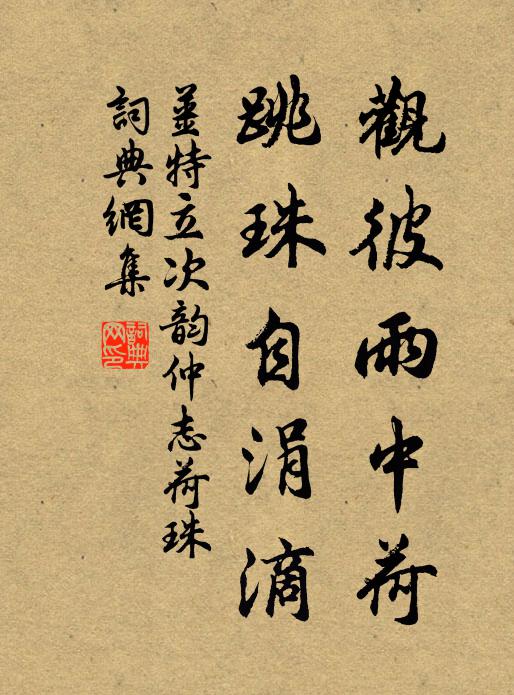 觀彼雨中荷
跳珠自涓滴
姜特立次韵仲志荷珠
詞典網集
詞典網印